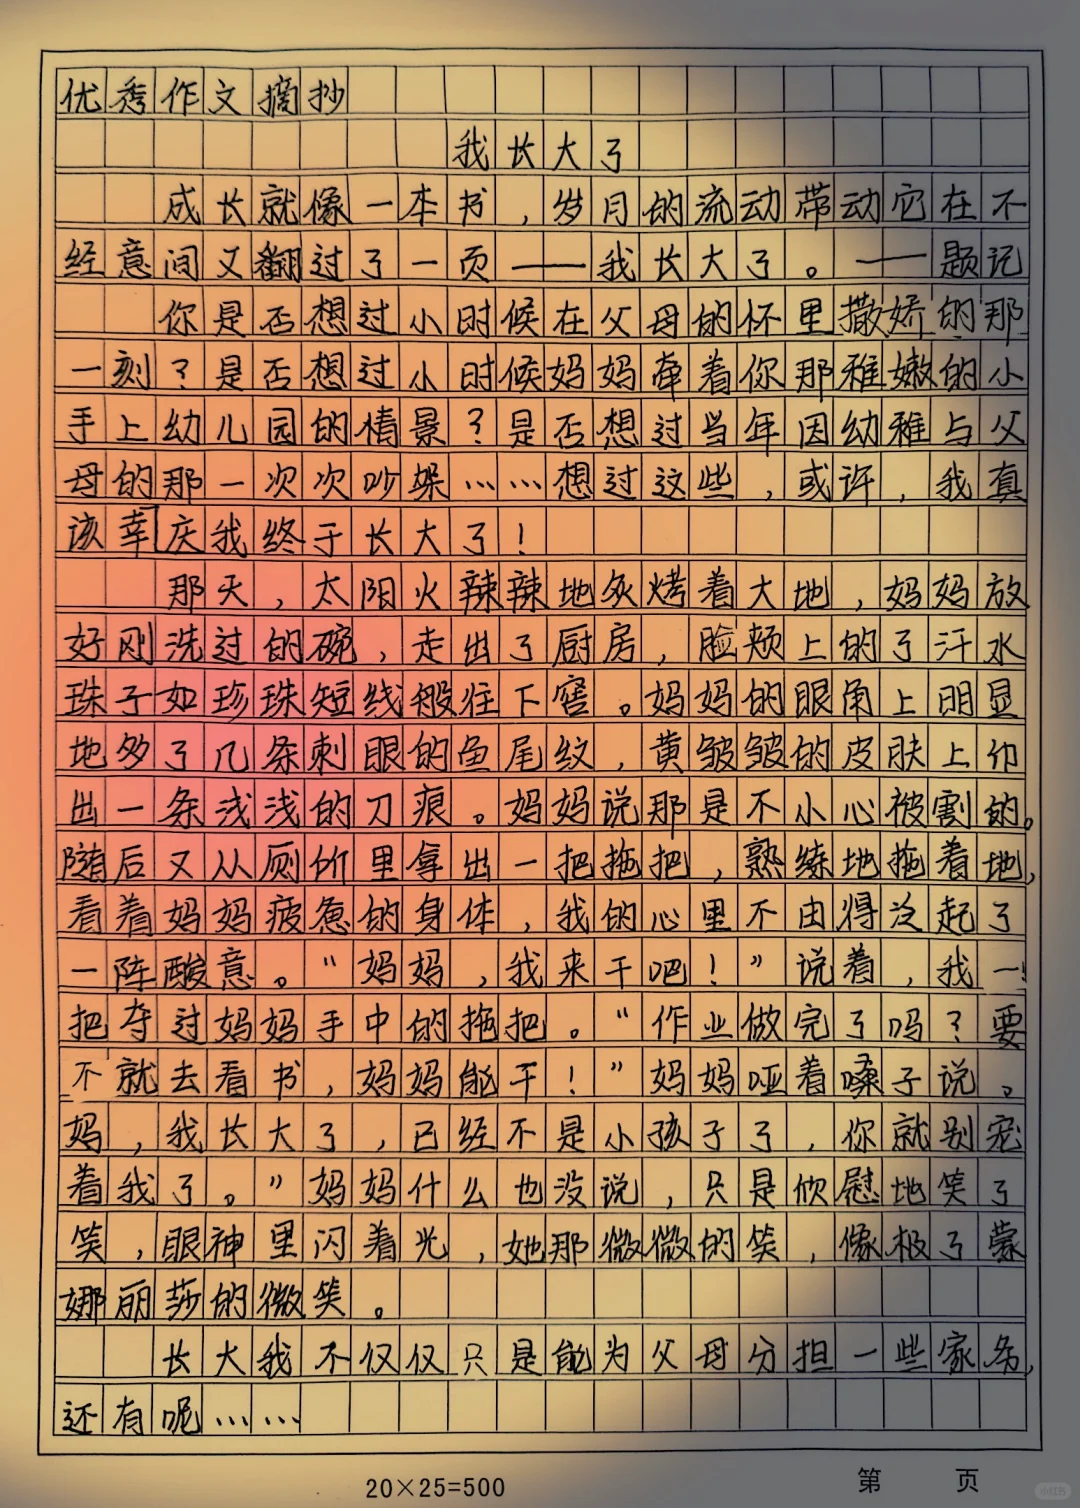 优秀作文摘抄
我长大了
成长就像一本书，岁月的流动带动它在不
经意间又翻过了一页——我长大了。——题记
你是否想过小时候在父母的怀里撒娇的那
一刻？是否想过小时候妈妈牵着你那稚嫩的小
手上幼儿园的情景？是否想过当年因幼稚与父
母的那一次次吵架……想过这些，或许，我真
该幸庆我终于长大了！
那天，太阳火辣辣地炙烤着大地，妈妈放
好刚洗过的碗，走出了厨房，脸颊上的了汗水
珠子如珍珠短线般往下窜。妈妈的眼角上明显
地多了几条刺眼的鱼尾纹，黄皱皱的皮肤上印
出一条浅浅的刀痕。妈妈说那是不小心被割的。
随后又从厕所里拿出一把拖把，熟练地拖着地，
看着妈妈疲惫的身体，我的心里不由得泛起了
一阵酸意。“妈妈，我来干吧！”说着，我一
把夺过妈妈手中的拖把。“作业做完了吗？要
不就去看书，妈妈能干！”妈妈哑着嗓子说。
妈，我长大了，已经不是小孩子了，你就别宠
着我了。”妈妈什么也没说，只是欣慰地笑了
笑，眼神里闪着光，她那微微的笑，像极了蒙
娜丽莎的微笑。
长大我不仅仅只是能为父母分担一些家务，
还有呢……
20×25=500
第 页
小红书